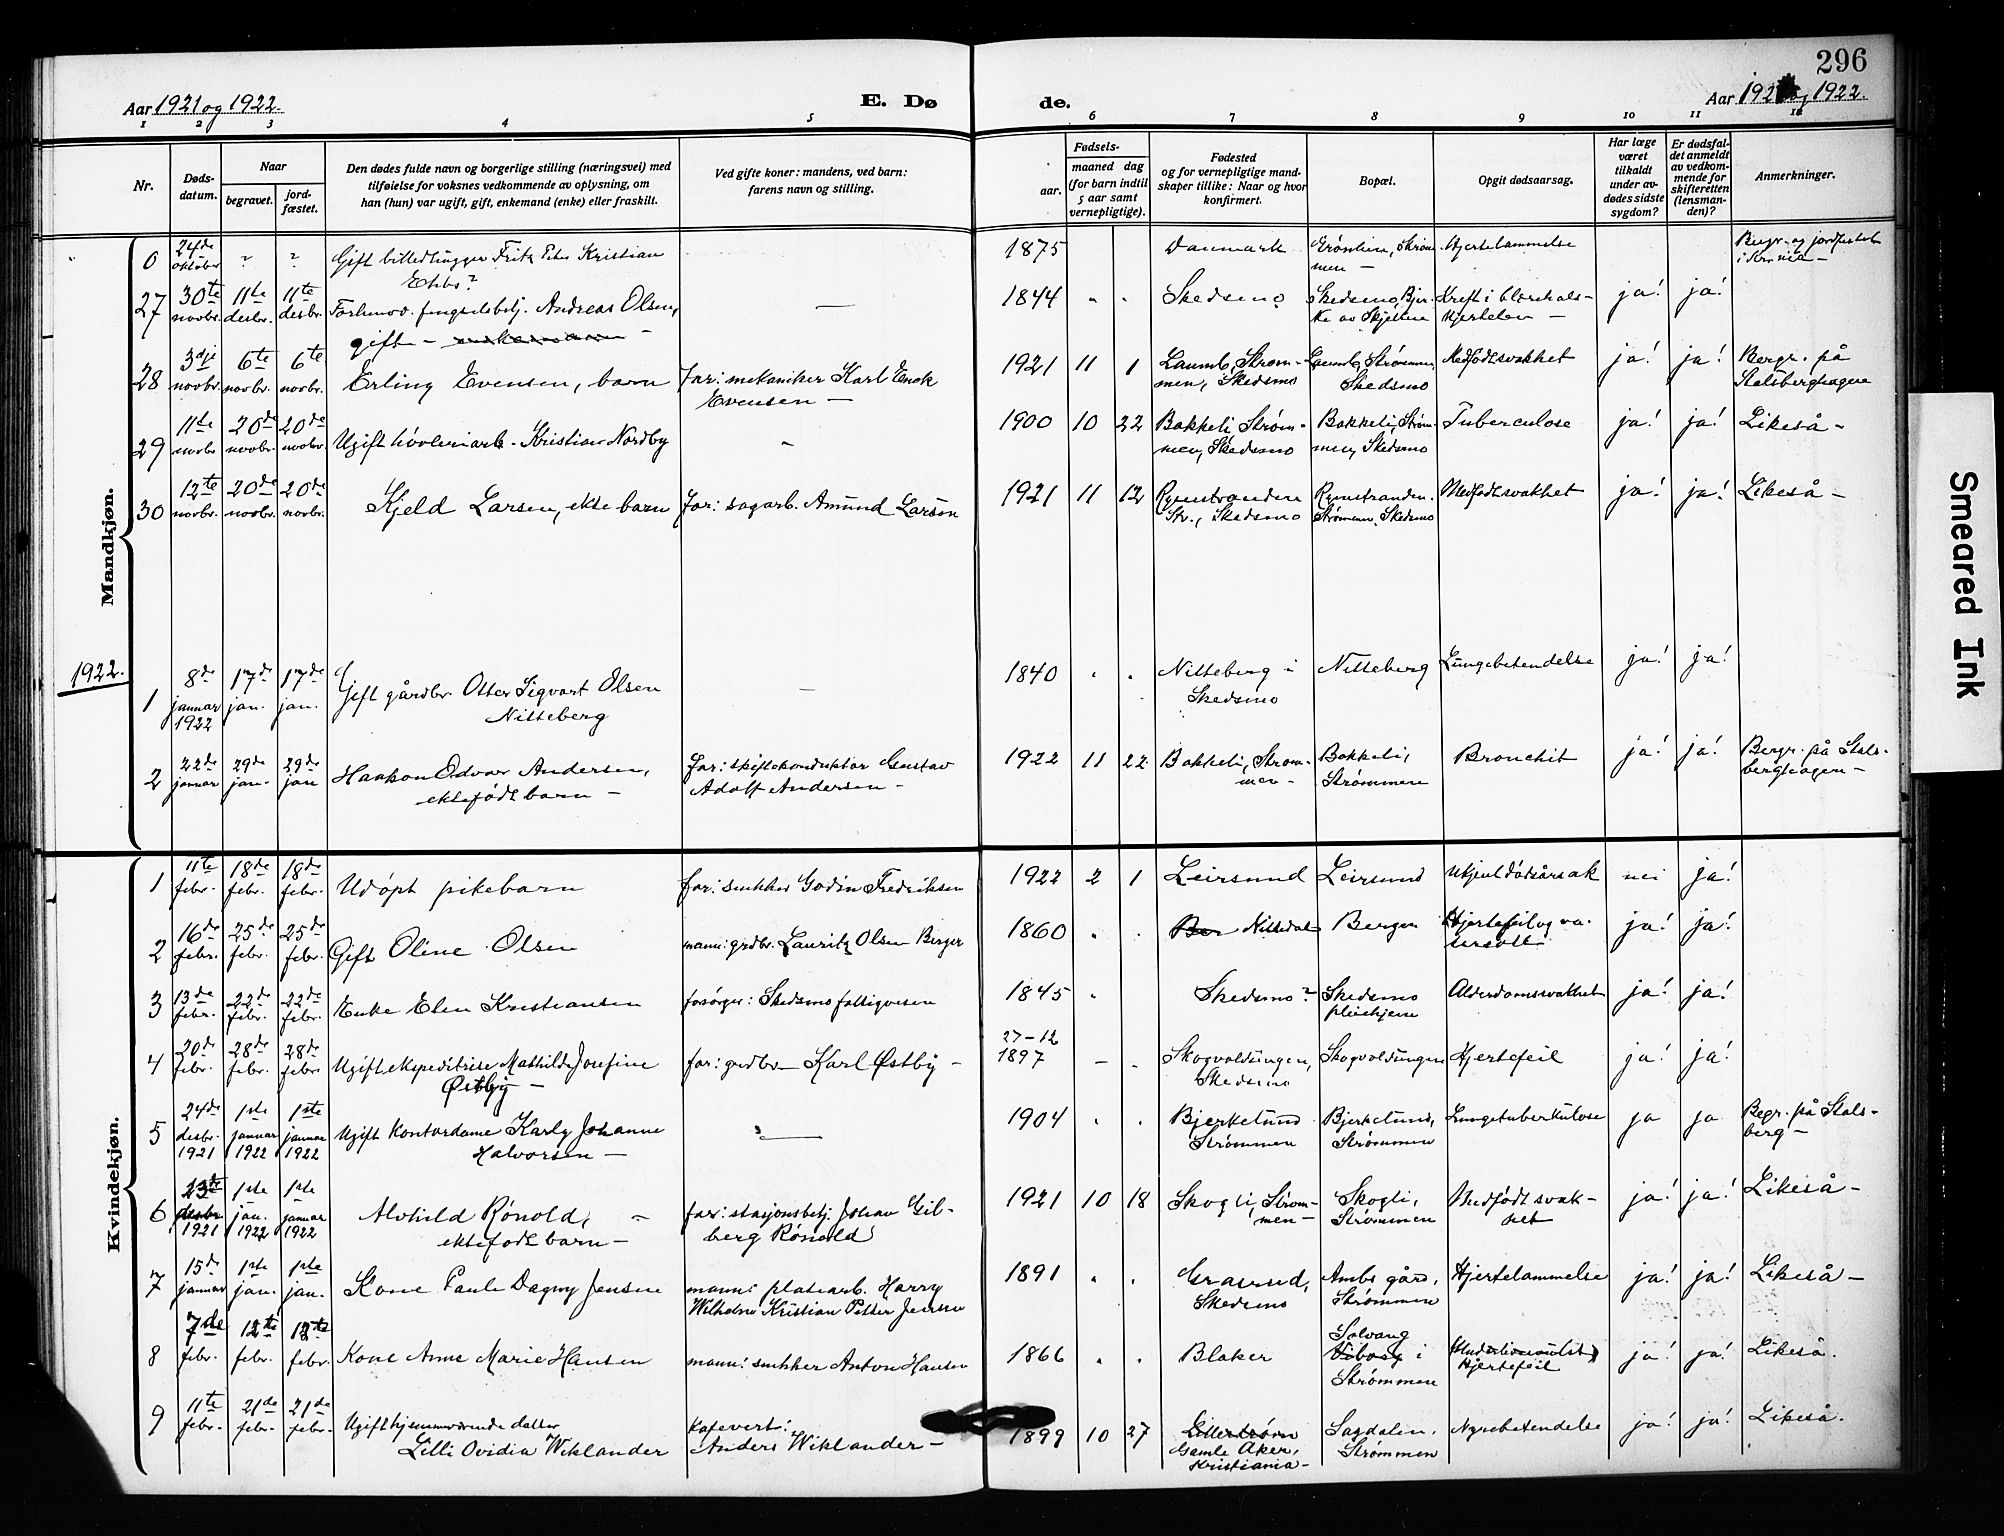 296
Aar 1921 og 1922.
E. Dø
de.
Aar 1921 og 1922.
1 2 3 4 5 6 7 8 9 10 11 12
Nr.
Døds-
datum.
Naar
begravet.
jord-
fæstet.
Den dødes fulde navn og borgerlige stilling (næringsvei) med
tilføielse for voksnes vedkommende av oplysning, om
han (hun) var ugift, gift, enkemand (enke) eller fraskilt.
Ved gifte koner: mandens, ved barn:
farens navn og stilling.
Fødsels-
aar.
maaned dag
(for barn indtil
5 aar samt
vernepligtige).
Fødested
og for vernepligtige mand-
skaper tillike: Naar og hvor
konfirmert.
Bopæl.
Opgit dødsaarsag.
Har læge
været
tilkaldt
under av-
dødes sidste
sygdom?
Er dødsfal-
det anmeldt
av vedkom-
mende for
skifteretten
(lensman-
den)?
Anmerkninger.
Mandkjøn.
0 24de oktober ? ? Gift billedhugger Fritz Kristian 1875 Danmark Strømmen - Hjertelammelse
27 30te novbr. 11te desbr. 11te desbr. Andreas Olsen, gift - — 1844 Skedsmo Skedsmo, ja! ja!
28 3dje novbr. 6te novbr. 6te novbr. Erling Evensen, barn far: mekaniker Karl Enok Evensen — 1921 11 1 Strømmen, Skedsmo Strømmen, Skedsmo Medfødt svakhet ja! ja! Begr. på Stalsberghagen
29 11te novbr. 20de novbr. 20de novbr. Ugift høvleriarb. Kristian Nordby - 1900 10 22 Bakkeli Strømmen, Skedsmo Bakkeli, Strømmen, Skedsmo Tuberculose ja! ja! Likeså -
30 12te novbr. 20de novbr. 20de novbr. Kjeld Larsen, ekte barn far: sagarb. Amund Larsen 1921 11 12 Rynstranden Str., Skedsmo Rynstranden. Strømmen, Skedsmo Medfødt svakhet ja! ja! Likeså -
1922.
1 8de januar 1922 17de jan. 17de jan. Gift gårdbr. Otter Sigvart Olsen Nitteberg - 1840 Nitteberg i Skedsmo Nitteberg Lungebetendelse ja! ja!
2 22de januar 29de jan. 29de jan Haakon Odvar Andersen, ektefødt barn - far: skiftekonduktør Gustav Adolf Andersen - 1922 11 22 Bakkeli, Strømmen - Bakkeli, Strømmen Bronchit ja! ja! Begr. på Stalsberghagen -
Kvindekjøn.
1 11te febr. 18de febr. 18de febr. Udøpt pikebarn far: snekker Godin Fredriksen 1922 2 1 Leirsund Leirsund Ukjent dødsårsak nei ja!
2 16de febr. 25de febr. 25de febr. Gift Oline Olsen mann: grdbr. Lauritz Olsen Berger 1860 Nittedal Berger Hjertefeil og vatersott ja! ja!
3 13de febr. 22de febr. 22de febr. Enke Elen Kristiansen forsørger: Skedsmo fattigvesen 1845 Skedsmo? Skedsmo pleiehjem Alderdomssvakhet ja! ja!
4 20de febr. 28de febr. 28de febr Ugift ekspeditrise Mathilde Josefine Østby - far: grdbr. Karl Østby - 27-12 1897 Skogvoldsingen, Skedsmo Skogvoldsingen Hjertefeil ja! ja!
5 24de desbr. 1921 1ste januar 1922 1ste januar 1922 Ugift Kontordame Karly Johanne Halvorsen - 1904 Bjerkelund Strømmen Bjerkelund, Strømmen Lungetuberkulose ja ja Begr. på Stalsberg -
6 23de desbr 1921 1ste jan. 1922 1ste januar 1922 Alvhild Rønold, ektefødt barn - far: stasjonsbetj. Johan Gilberg Rønold 1921 10 18 Skogli, Strømmen - Skogli, Strømmen Medfødt svakhet ja! ja! Likeså -
7 15de januar 1ste jan. 1ste jan. Kone Paula Dagny Jensen mann: platearb. Harry Wilhelm Kristian Petter Jensen 1891 Skedsmo Strømmen Hjertelammelse ja! ja! Likeså -
8 7de febr. 12te febr. 12te febr. Kone Anne Marie Hansen mann: snekker Anton Hansen 1866 Blaker Solvang i Strømmen Hjertefeil ja! ja! Likeså.
9 11te febr. 21de febr. 21de febr. Ugift hjemmeværende datter Lilli Ovidia Wiklander kafevert: Anders Wiklander - 1899 10 27 Lillestrøm Gamle Aker, Kristiania - Sagdalen, Strømmen Nyrebetendelse ja! ja! Likeså.
Smeared Ink